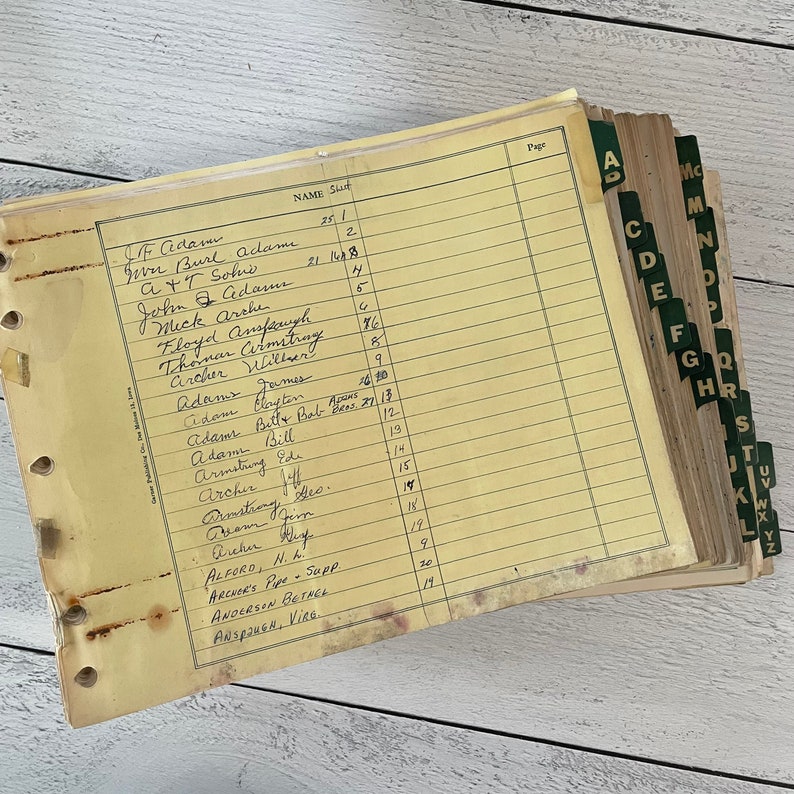 NAME Sheet Page
J F Adams 25 1
Mrs Burl Adams 2
A & T Sohio 21 16A 3
John Q Adams 4
Mick Archer 5
Floyd Anspaugh 6
Thomas Armstrong 76
Archer Willser 8
Adams James 9
Adam Clayton 26 10
Adams Bill & Bob ADAMS BROS. 27 13
Adams Bill 12
Armstrong Ede 13
Archer Jeff 14
Armstrong Geo. 15
Adams Jim 17
Archer 18
ALFORD, H. L. 19
ARCHER'S PIPE & SUPP. 9
ANDERSON BETHEL 20
ANSPAUGH, VIRG. 19
Garner Publishing Co., Des Moines 12, Iowa
A
B
C
D
E
F
G
H
I
J
K
L
Mc
M
N
O
P
Q
R
S
T
UV
WX
YZ